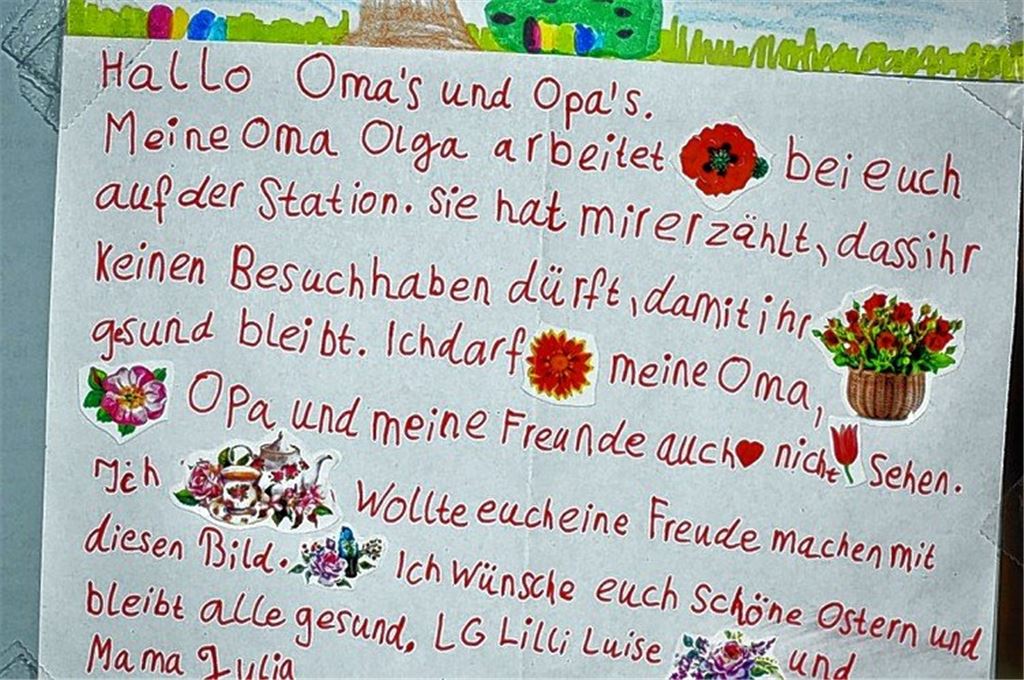 Hallo Oma's und Opa's.
Meine Oma Olga arbeitet bei euch
auf der Station. Sie hat mir erzählt, dass ihr
keinen Besuch haben dürft, damit ihr
gesund bleibt. Ich darf meine Oma,
Opa und meine Freunde auch nicht sehen.
Ich Wollte euch eine Freude machen mit
diesen Bild. Ich wünsche euch Schöne Ostern und
bleibt alle gesund. LG Lilli Luise und
Mama Julia